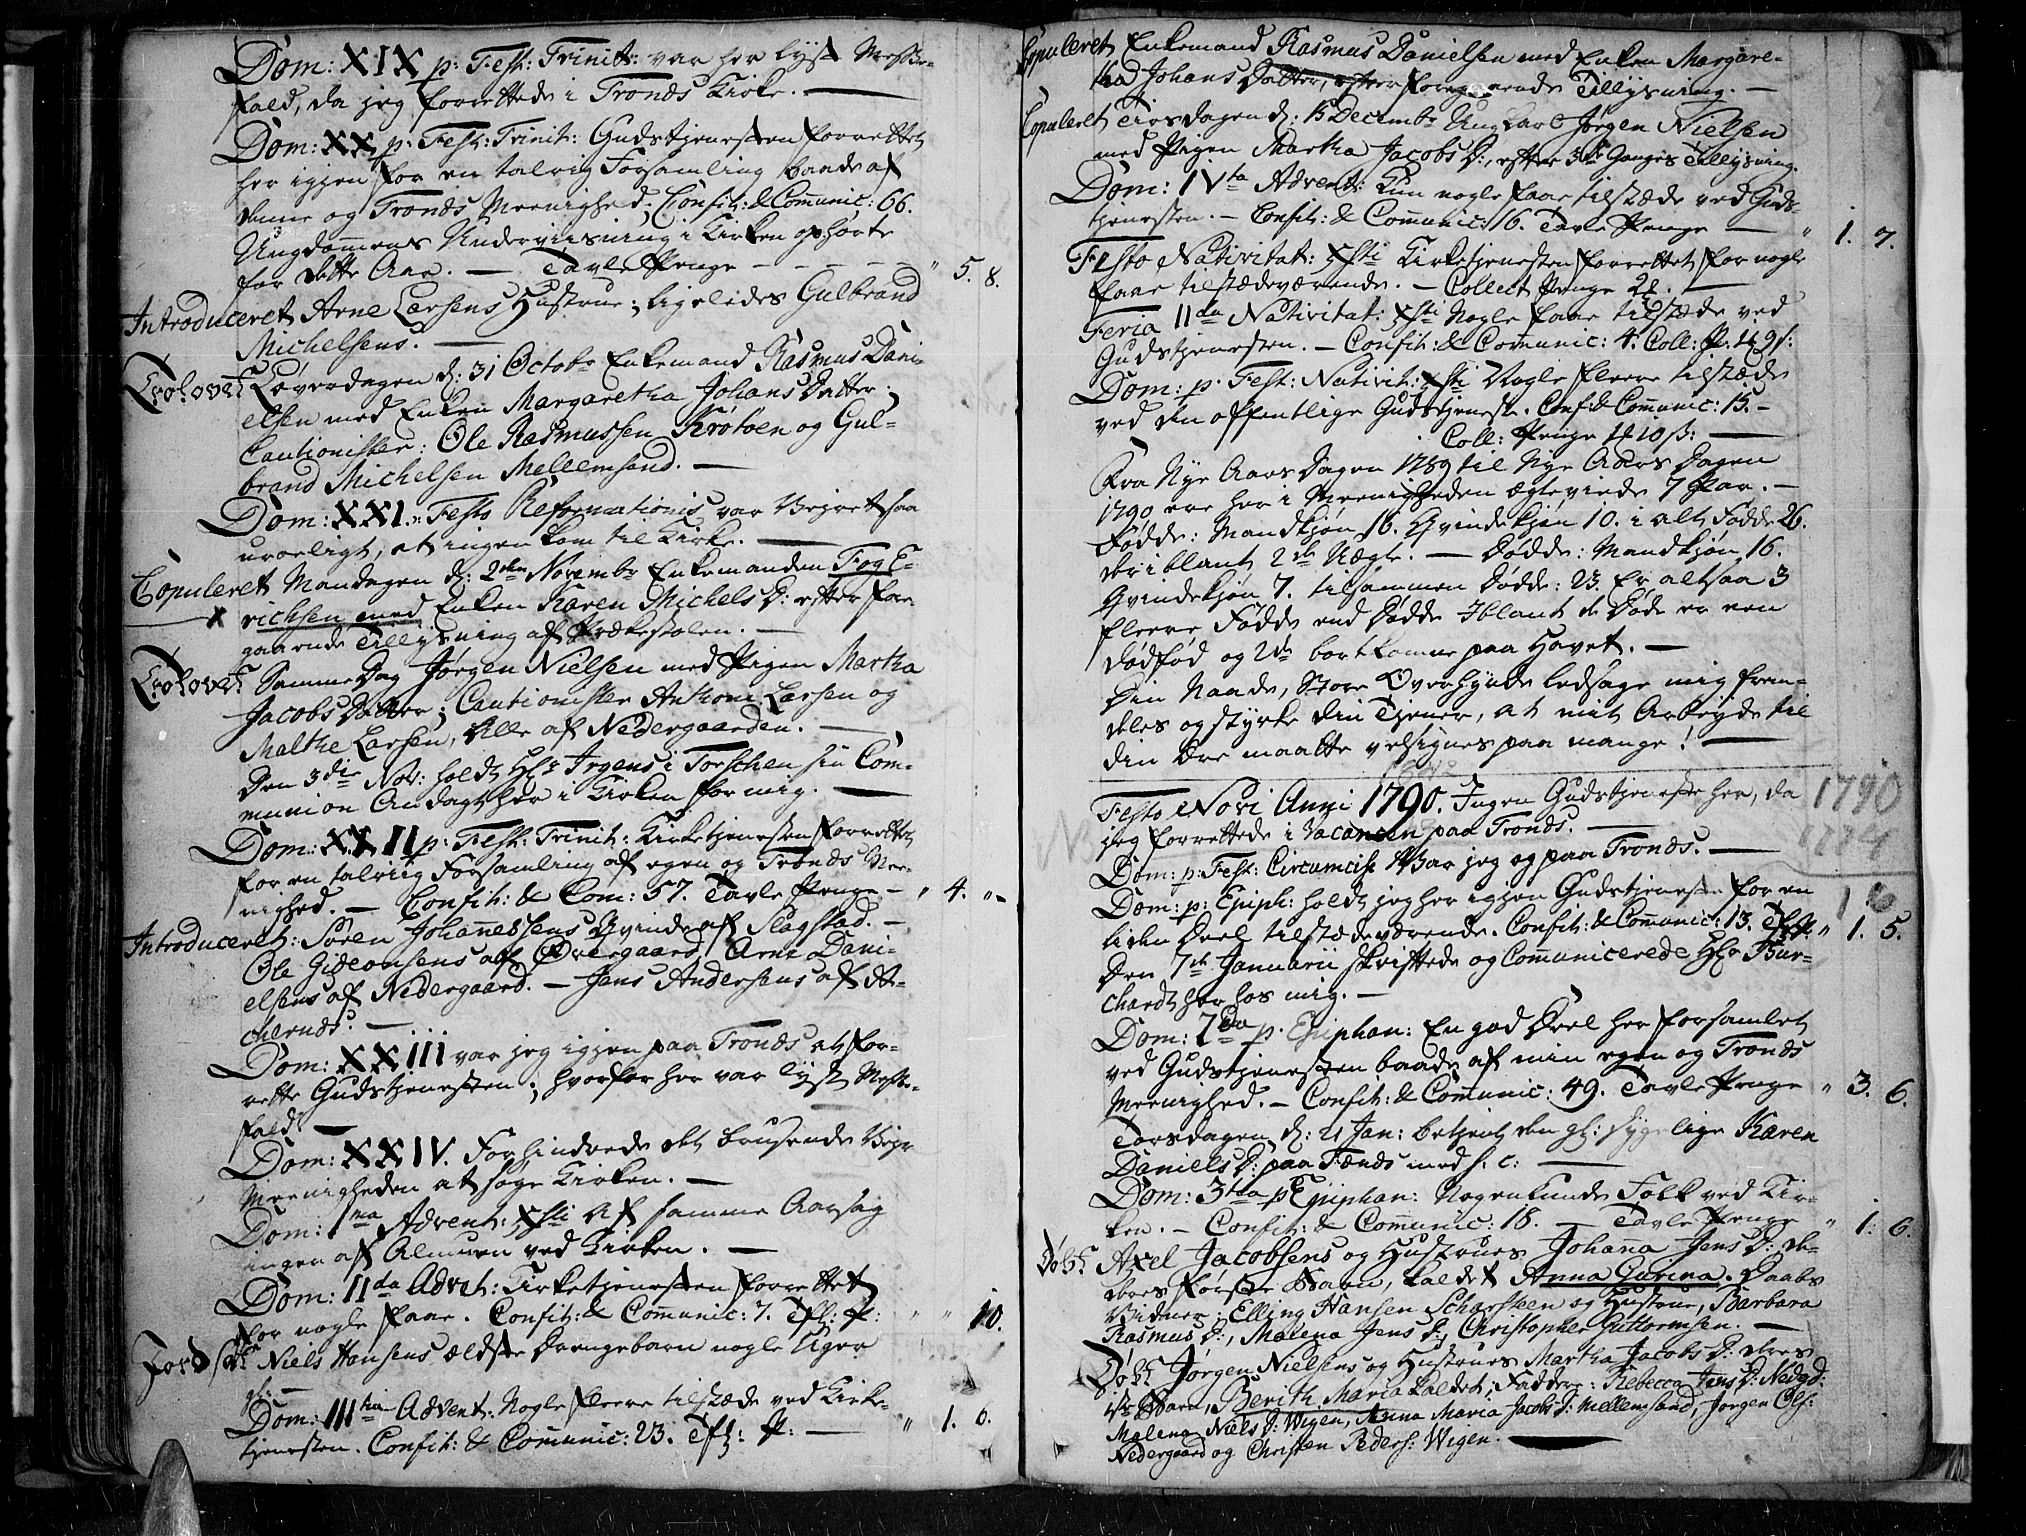 Dom: XIX p: Fest: Trinit: var her lyst Messe-
fald, da jeg forrettede i Tronds Kirke. —
Dom: XX p: Fest: Trinit: Gudstjenesten forrettet
her igjen for en talrig Forsamling baade af
denne og Tronds Meenighed. Confit: & Communic: 66.
Ungdommens Underviisning i Kirken ophørte
for dette Aar. — Tavle Penge — — — — " 5. 8.
Introduceret Arne Larsens Hustrue; ligeledes Gulbrand
Michelsens. —
Trolovet Løverdagen d: 31 Octobr Enkemand Rasmus Dani-
elsen med Enken Margaretha Johans Datter;
Cautionister: Ole Rasmussen Krøtøen og Gul-
brand Michelsen Mellemsand. —
Dom: XXI. Festo Reformationis var Vejret saa
uroeligt, at ingen kom til Kirke. —
Copuleret Mandagen d: 2den Novembr Enkemanden Fog E-
richsen med Enken Karen Michels D: efter fore-
gaaende Tillysning af Prækestolen. —
Trolovet Samme Dag Jørgen Nielsen med Pigen Martha
Jacobs Datter; Cautionister Anthoni Larsen og
Malthe Larsen, Alle af Nedergaarden. —
Den 3die Nov: holdt Hr Irgens i Torschen sin Com-
munion Andagt her i Kirken for mig. —
Dom: XXII p: Fest: Trinit: Kirketjenesten forrettet
for en talriig Forsamling af egen og Tronds Mee-
nighed. — Confit: & Com: 57. Tavle Penge — " 4. "-
Introduceret: Søren Johannessens Qvinde af Slagstad. —
Ole Gideonsens af Øvergaard, Arne Dani-
elsens af Nedergaard. — Jens Andersens af At-
chernds. —
Dom: XXIII var jeg igjen paa Tronds at for-
rette Gudstjenesten; hvorfor her var lyst Messe-
fald. —
Dom: XXIV. Forhindrede det brusende Vejr
Meenigheden at søge Kirken. —
Dom: 1ma Advent: Xsti Af samme Aarsag
ingen af Almuen ved Kirken. —
Dom: IIda Advet: Kirketjenesten forrettet
for nogle faae. Confit: & Communic: 7. Tfl: P: " " 10.
Jordfæst Niels Hansens ældste Drengebarn nogle Uger
gl: —
Dom: IIItia Advent: Nogle fleere tilstæde ved Kirke-
tjenesten. Confit: & Communic: 23. Tfl: P: — " 1. 0.
Copuleret Enkemand Rasmus Danielsen med Enken Margare-
tha Johans Datter, efter foregaaende Tillysning. —
Copuleret Tirsdagen d: 15 Decembr Ung Karl Jørgen Nielsen
med Pigen Martha Jacobs D:, efter 3de Ganges Tillysning.
Dom: IVta Advent: Kun nogle faae tilstæde ved Guds-
tjenesten. — Confit: & Communic: 16. Tavle Penge — " 1. 7.
Festo Nativitat: Xsti Kirketjenesten forrettet for nogle
faae tilstædeværende. — Collect Penge 21. —
Feria IIda Nativitat: Xsti Nogle faae tilstæde ved
Gudstjenesten. — Confit: & Communic: 4. Coll: P.
Dom: p: Fest: Nativit: Xsti Nogle fleere tilstæde
ved den offentlige Gudstjeneste. Conf: & Communic: 15. —
Coll: Penge 10 ß: —
Fra Nye Aars Dagen 1789 til Nye Aars Dagen
1790 ere her i Meenigheden ægteviede 7 Par. —
Fødde: Mandkjøn 16. Qvindekjøn 10. i alt Fødde 26.
deriblant 2de Uægte. — Dødde: Mandkjøn 16.
Qvindekjøn 7. tilsammen Dødde: 23. Er altsaa 3
fleere Fødde end Dødde. Iblant de Døde er een
Dødfød og 2de bortkomne paa Havet. —
Din Naade, Store Overhyrde ledsage mig frem-
deles og styrke din Tjener, at mit Arbeyde til
din Ære maatte velsignes paa mange! —
Festo Novi Anni 1790. Ingen Gudstjeneste her, da 1790
jeg forrettede i Vacancen paa Tronds. —
Dom: p: Fest: Circumcis: Var jeg og paa Tronds. —
Dom: p: Epiph: holdt jeg her igjen Gudstjeneste for en
liden Deel tilstædeværende. Confit: & Communic: 13. Tfl: P. " 1. 5.
Den 7de Januarii skriftede og Communicerede Hr Bur-
chardt her hos mig. —
Dom: 2da p. Epiphan: En god Deel her forsamlet
ved Gudstjenesten baade af min egen og Tronds
Meenighed. — Confit: & Communic: 49. Tavle Penge " 3. 6.
Torsdagen d: 21 Jan: betjent den gl: sygelige Karen
Daniels D: paa Fænds med s: c: —
Dom: 3tia p Epiphan: Nogenlunde Folk ved Kir-
ken. — Confit: & Communic: 18. — Tavle Penge " 1. 6.
Døbt Axel Jacobsens og Hustrues Johanna Jens D: de-
res første Barn, kaldet Anna Gurina. Daabs
Vidner: Elling Hansen Scharsteen og Hustrue, Barbara
Rasmus D:, Malena Jens D:, Christopher Guttormsen. —
Døbt Jørgen Nielsens og Hustrues Martha Jacobs D: deres
1ste Barn, Berith Maria kaldet; Faddere: Rebecca Jens D: Nedgd:
Malena Niels D: Wigen, Anna Maria Jacobs D: Mellemsand, Jørgen Ols:
Nedergaard og Christen Peders: Wigen. —